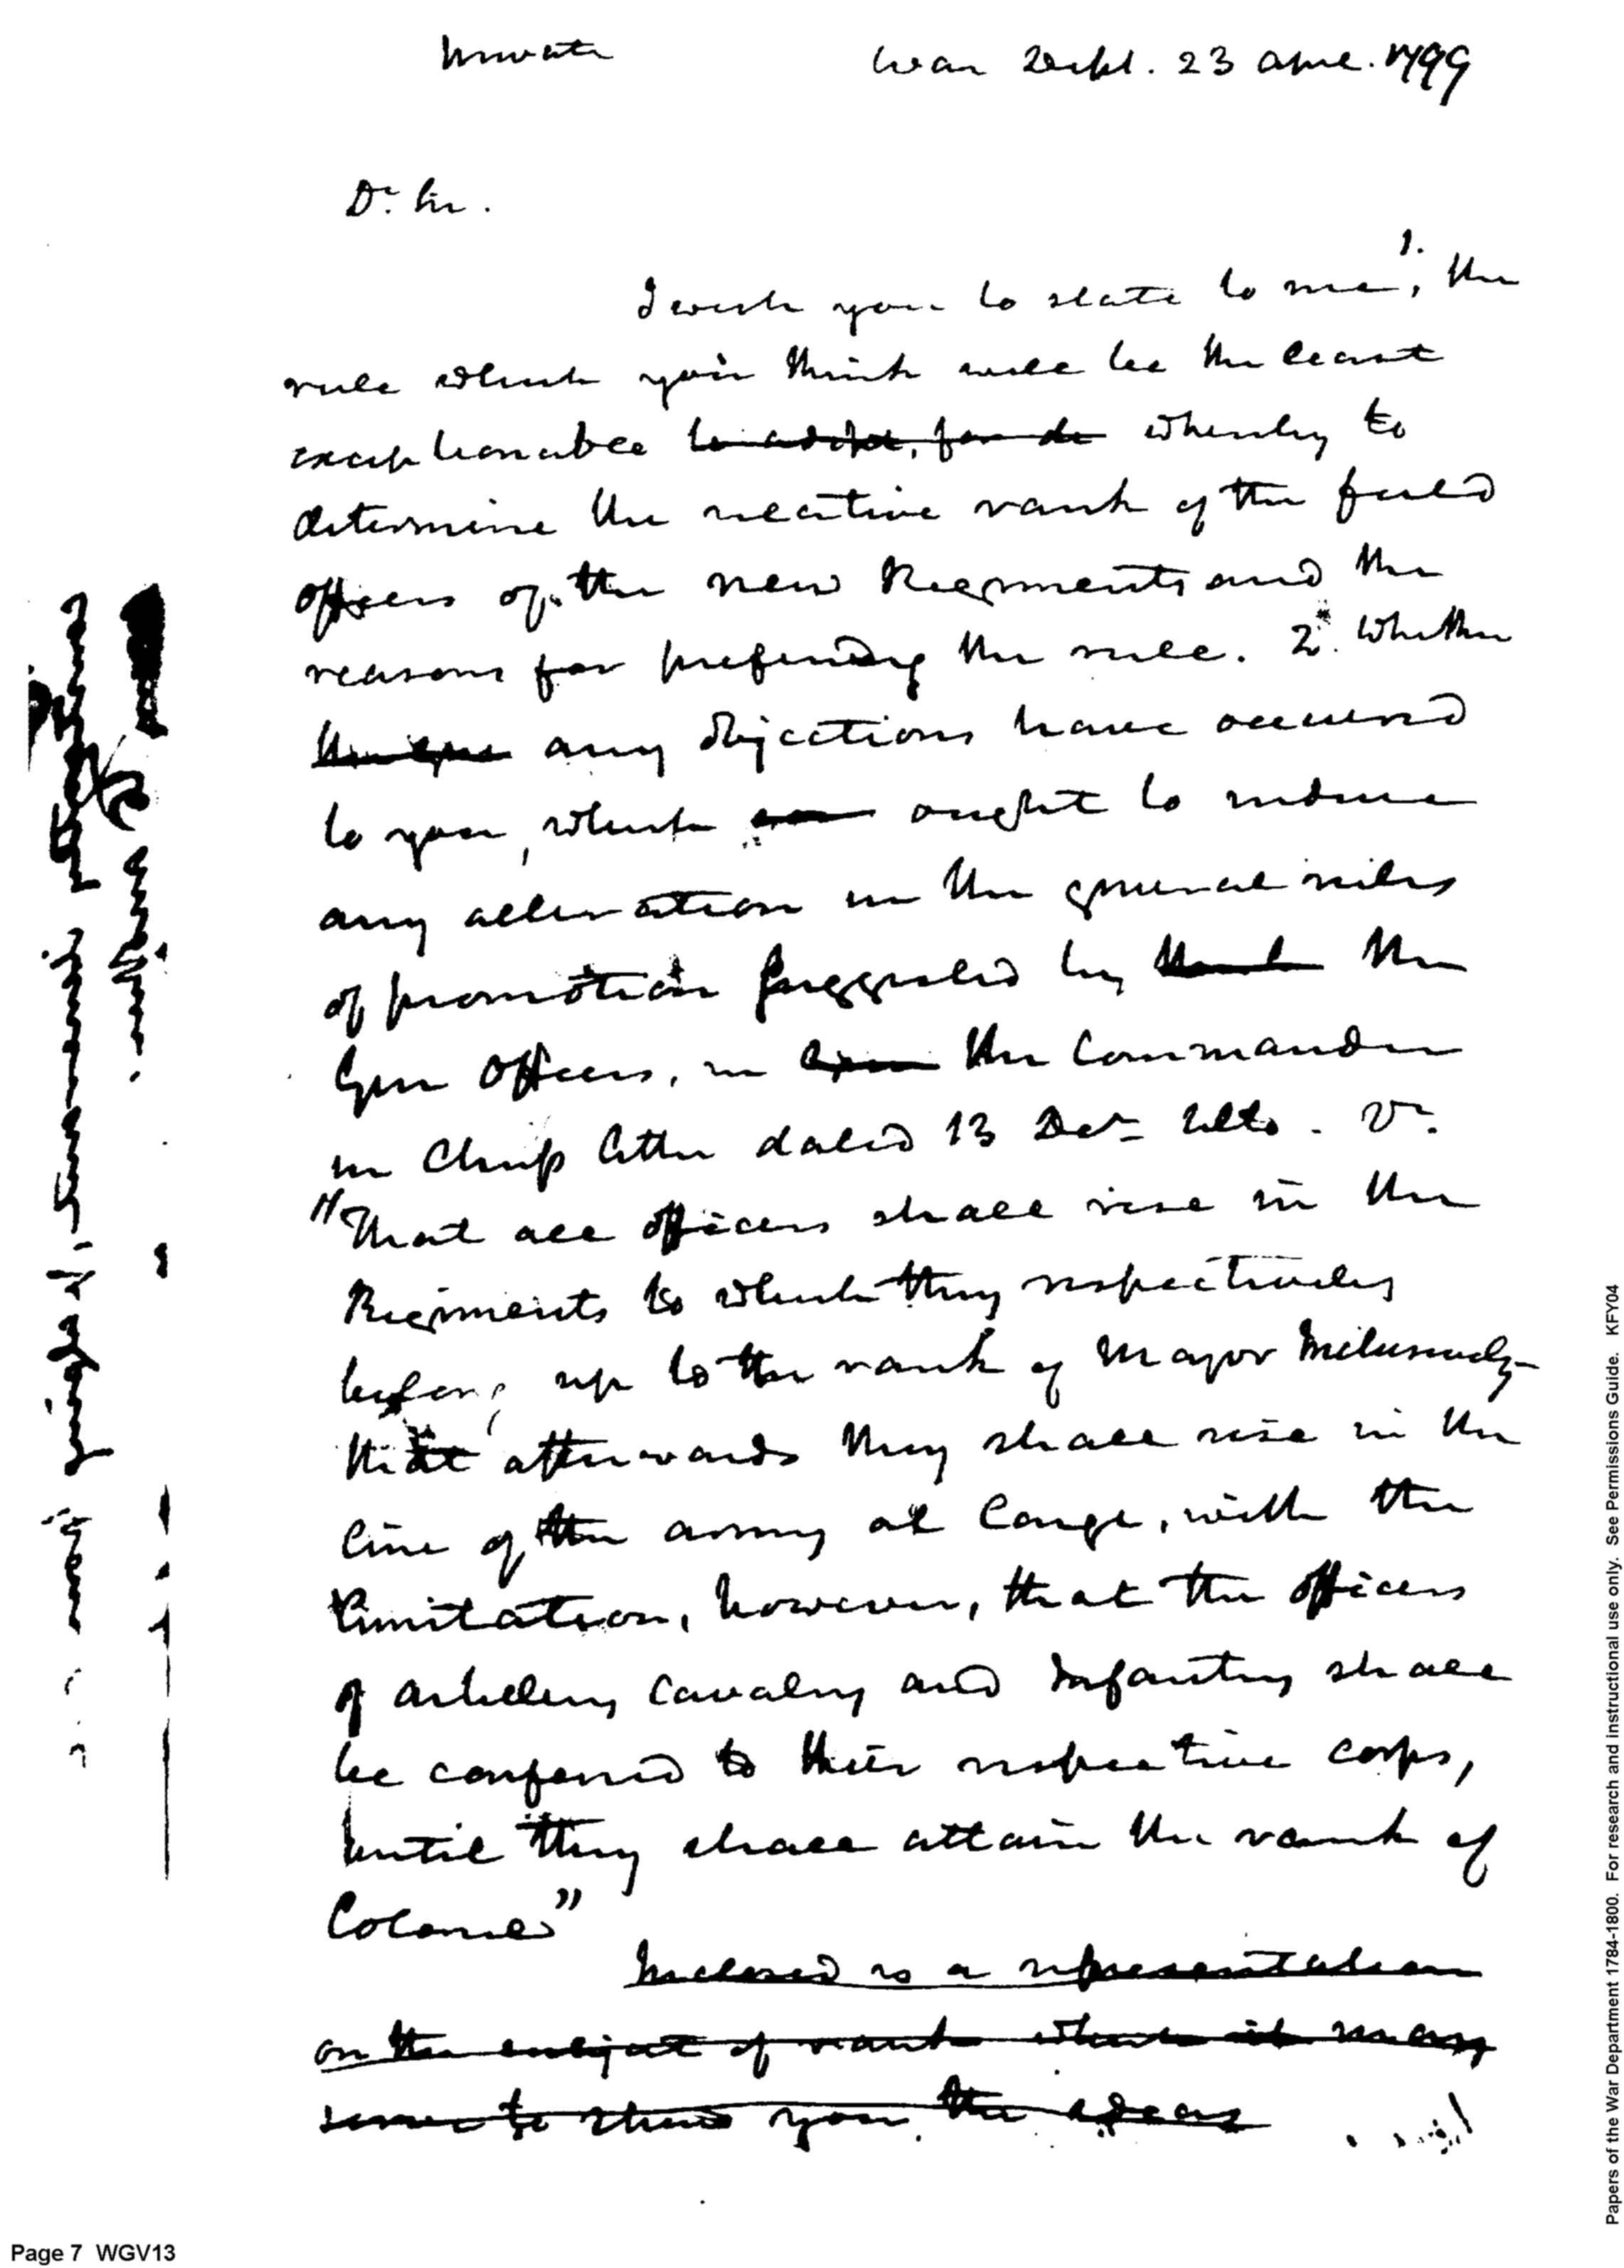 Private War Dept. 23 April. 1799
Dr. Sir.
I wish you to state to me, 1. the
rule which you think will be the least
exceptionable to adopt, for de whereby to
determine the relative rank of the field
officers of the new Regiments and the
reasons for preferring the rule. 2. Whether
any objections have occurred
to you, which ought to induce
any alteration in the general rules
of promotion suggested by the
Gen Officers, in the Commander
in Chiefs letter dated 13 Decr. Ulto. Vz.
"That all officers shall rise in the
Regiments to which they respectively
belong, up to the rank of Major inclusively
that afterwards they shall rise in the
line of the army at large, with the
limitation, however, that the officers
of artillery cavalry and Infantry shall
be confined to their respective corps,
until they shall attain the rank of
Colonel"
Inclosed is a representation
on the subject of rank which it may
serve to shew you the ideas
Page 7 WGV13
Papers of the War Department 1784-1800. For research and instructional use only. See Permissions Guide. KFY04